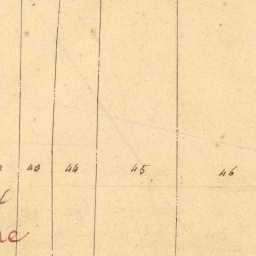 43 44 45 46